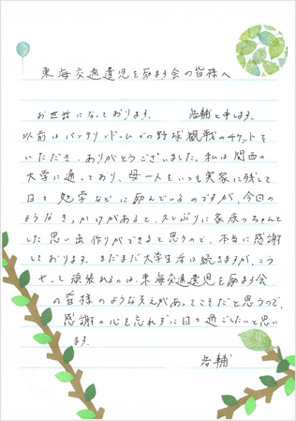 東海交通遺児を励ます会の皆様へ
お世話になっております。 浩輔と申します。
以前はバンテリンドームでの野球観戦のチケットを
いただき、ありがとうございました。私は関西の
大学に通っており、母一人をいつも実家に残して
日々勉学などに励んでいるのですが、今回の
ようなきっかけがあると、久しぶりに家族のちゃんと
した思い出作りができると思うので、本当に感謝
しております。まだまだ大学生活は続きますが、こう
やって頑張れるのは、東海交通遺児を励ます会
の皆様のような支えがあってこそだと思うので、
感謝の心を忘れずに日々過ごしたいと思い
ます。
浩輔